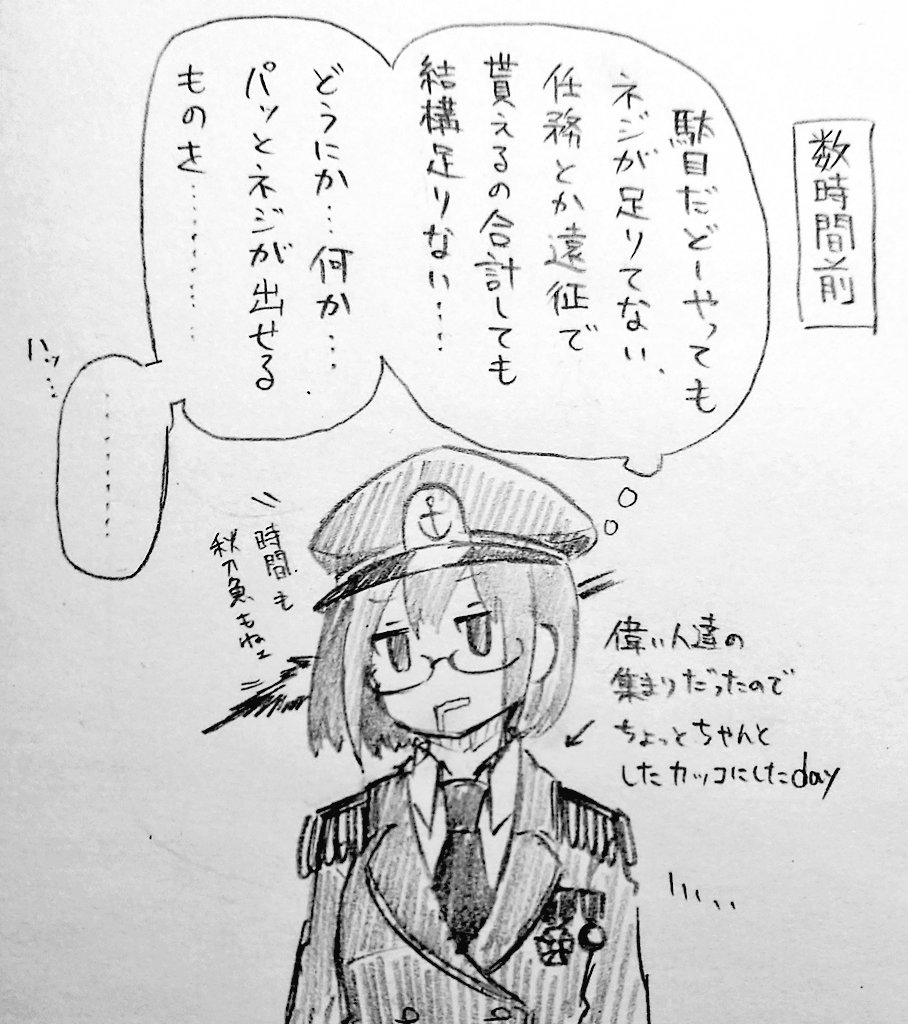 数時間前
駄目だどーやっても
ネジが足りてない
任務とか遠征で
貰えるの合計しても
結構足りない…
どうにか…何か…
パッとネジが出せる
ものさ…………
ハッ…
………
時間も
秋刀魚もねェ
偉い人達の
集まりだったので
ちょっとちゃんと
したカッコにしたday